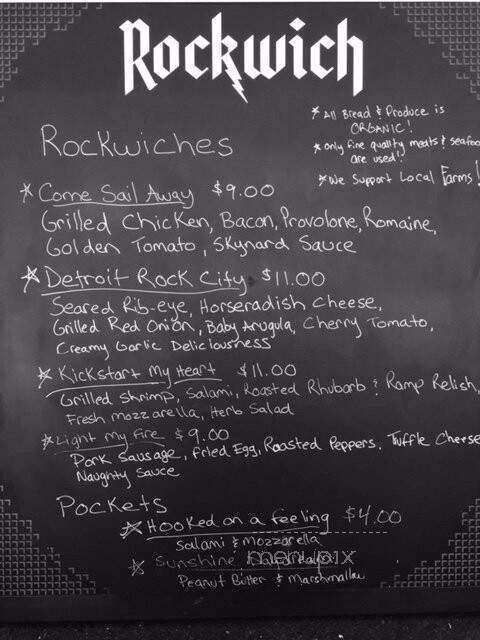 Rockwich
* All Bread & Produce is
ORGANIC!
* only fine quality meats & seafoo
are used!
* We Support Local Farms!
Rockwiches
* Come Sail Away $9.00
Grilled Chicken, Bacon, Provolone, Romaine,
Golden Tomato, Skynard Sauce
* Detroit Rock City $11.00
Seared Rib-eye, Horseradish Cheese,
Grilled Red Onion, Baby Arugula, Cherry Tomato,
Creamy Garlic Deliciousness
* Kickstart My Heart $11.00
Grilled Shrimp, Salami, Roasted Rhubarb & Ramp Relish,
Fresh Mozzarella, Herb Salad
* Light my Fire $9.00
Pork Sausage, Fried Egg, Roasted Peppers, Truffle Cheese
Naughty Sauce
Pockets
* Hooked on a feeling $4.00
Salami & Mozzarella
* Sunshine
Peanut Butter & Marshmallow